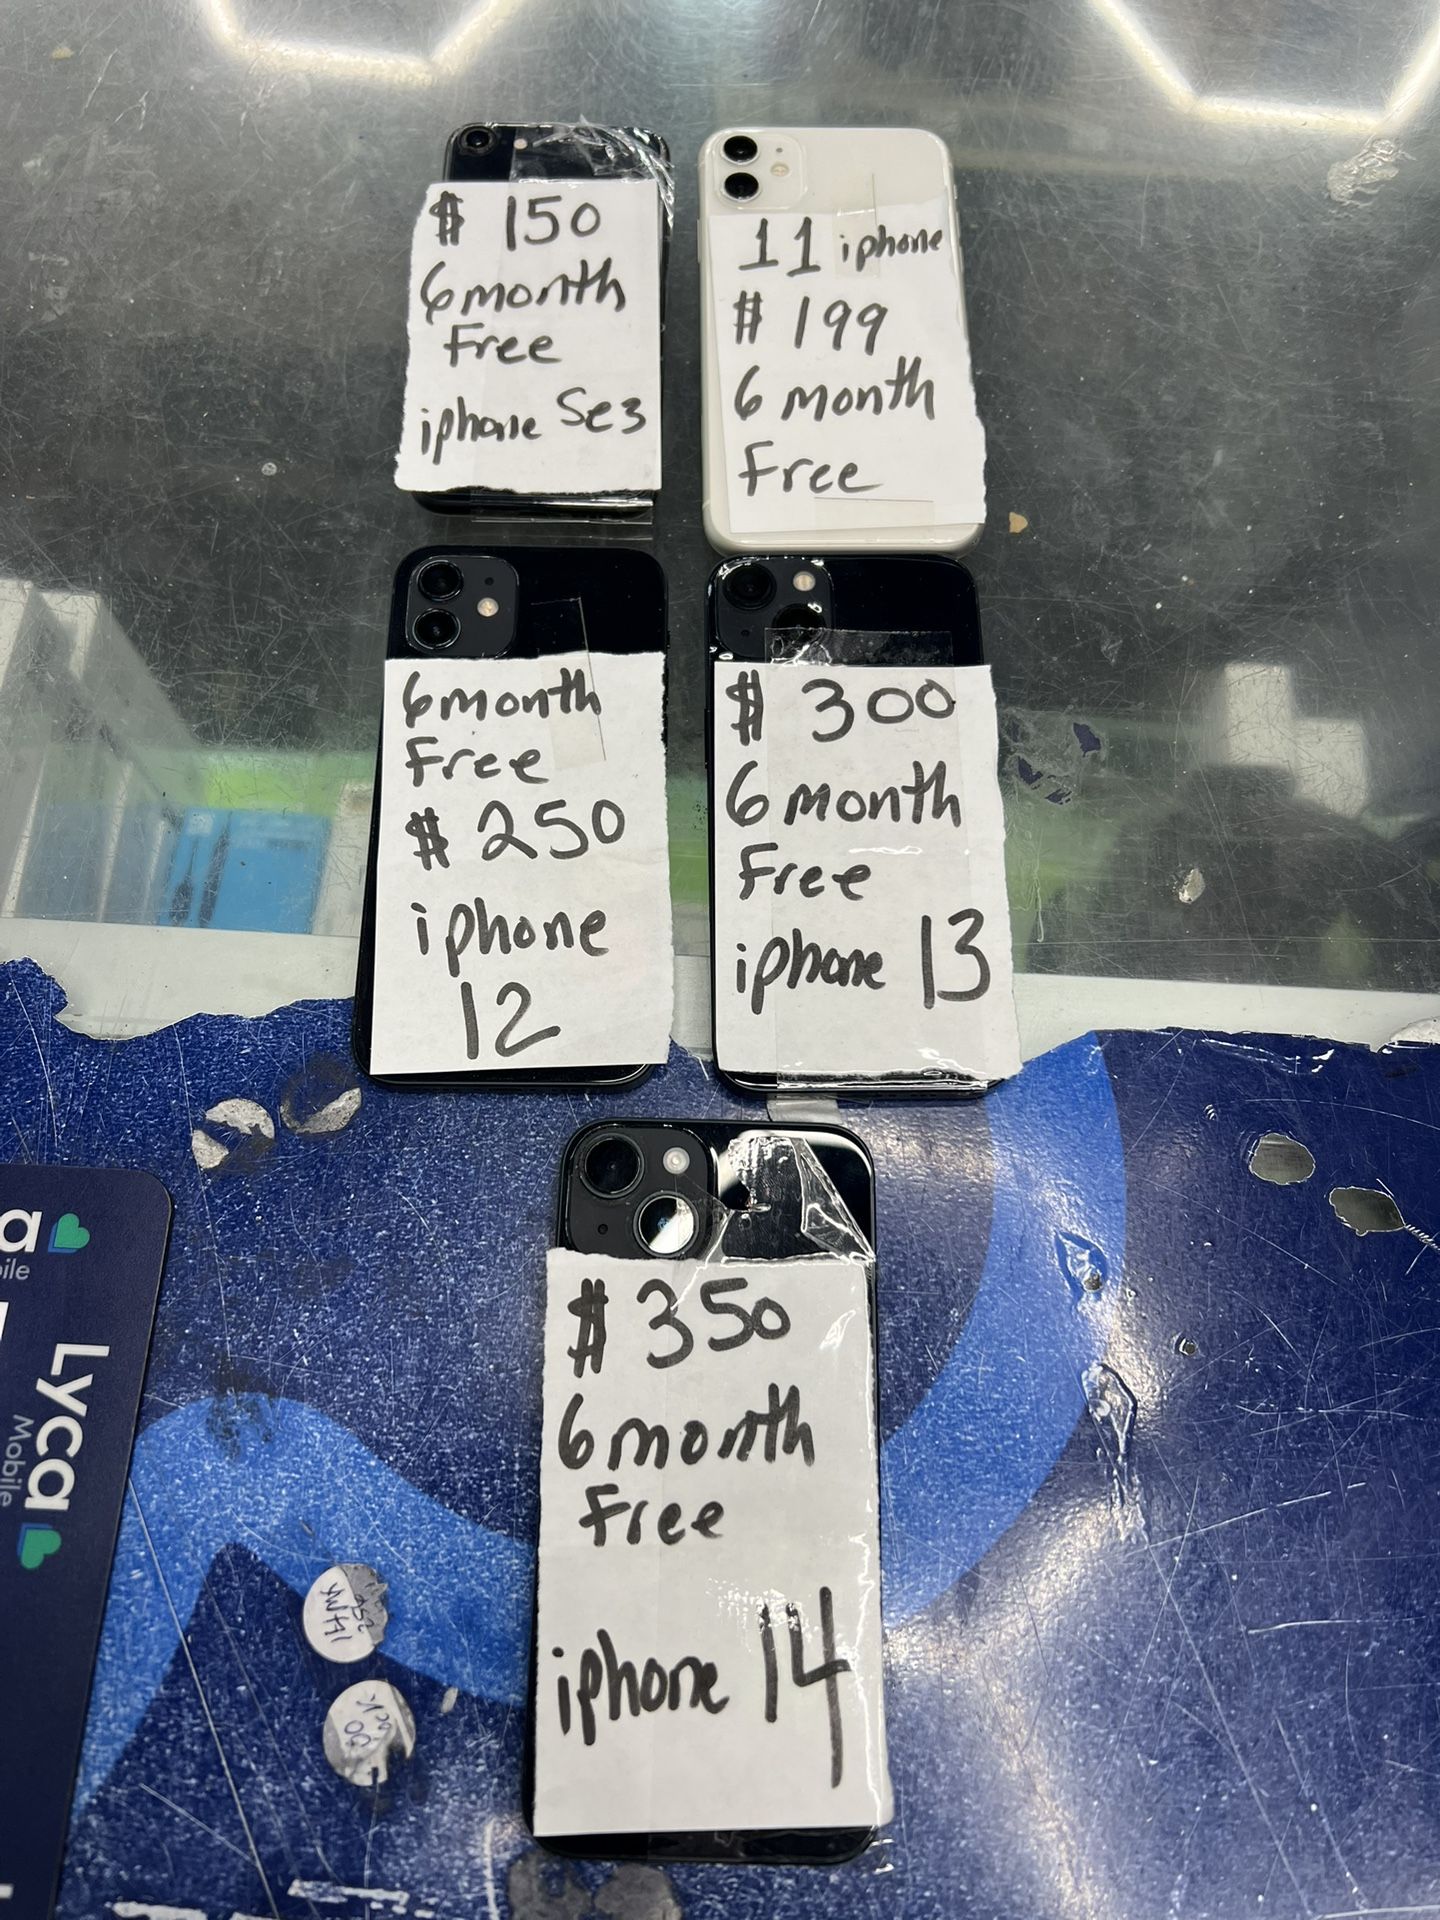 $ 150
6 month
Free
iphone Se3
11 iphone
$ 199
6 month
Free
6 month
Free
$ 250
iphone
12
$ 300
6 month
Free
iphone 13
$ 350
6 month
Free
iphone 14
a
ile
Lyca
Mobile